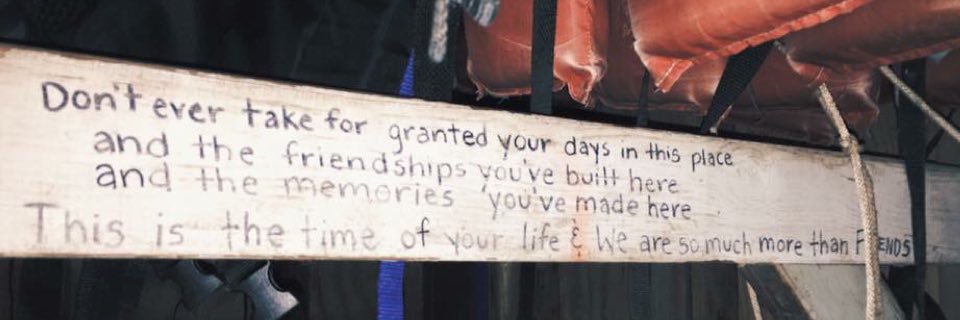 Don't ever take for granted your days in this place
and the friendships you've built here
and the memories you've made here
This is the time of your life & We are so much more than F ENDS